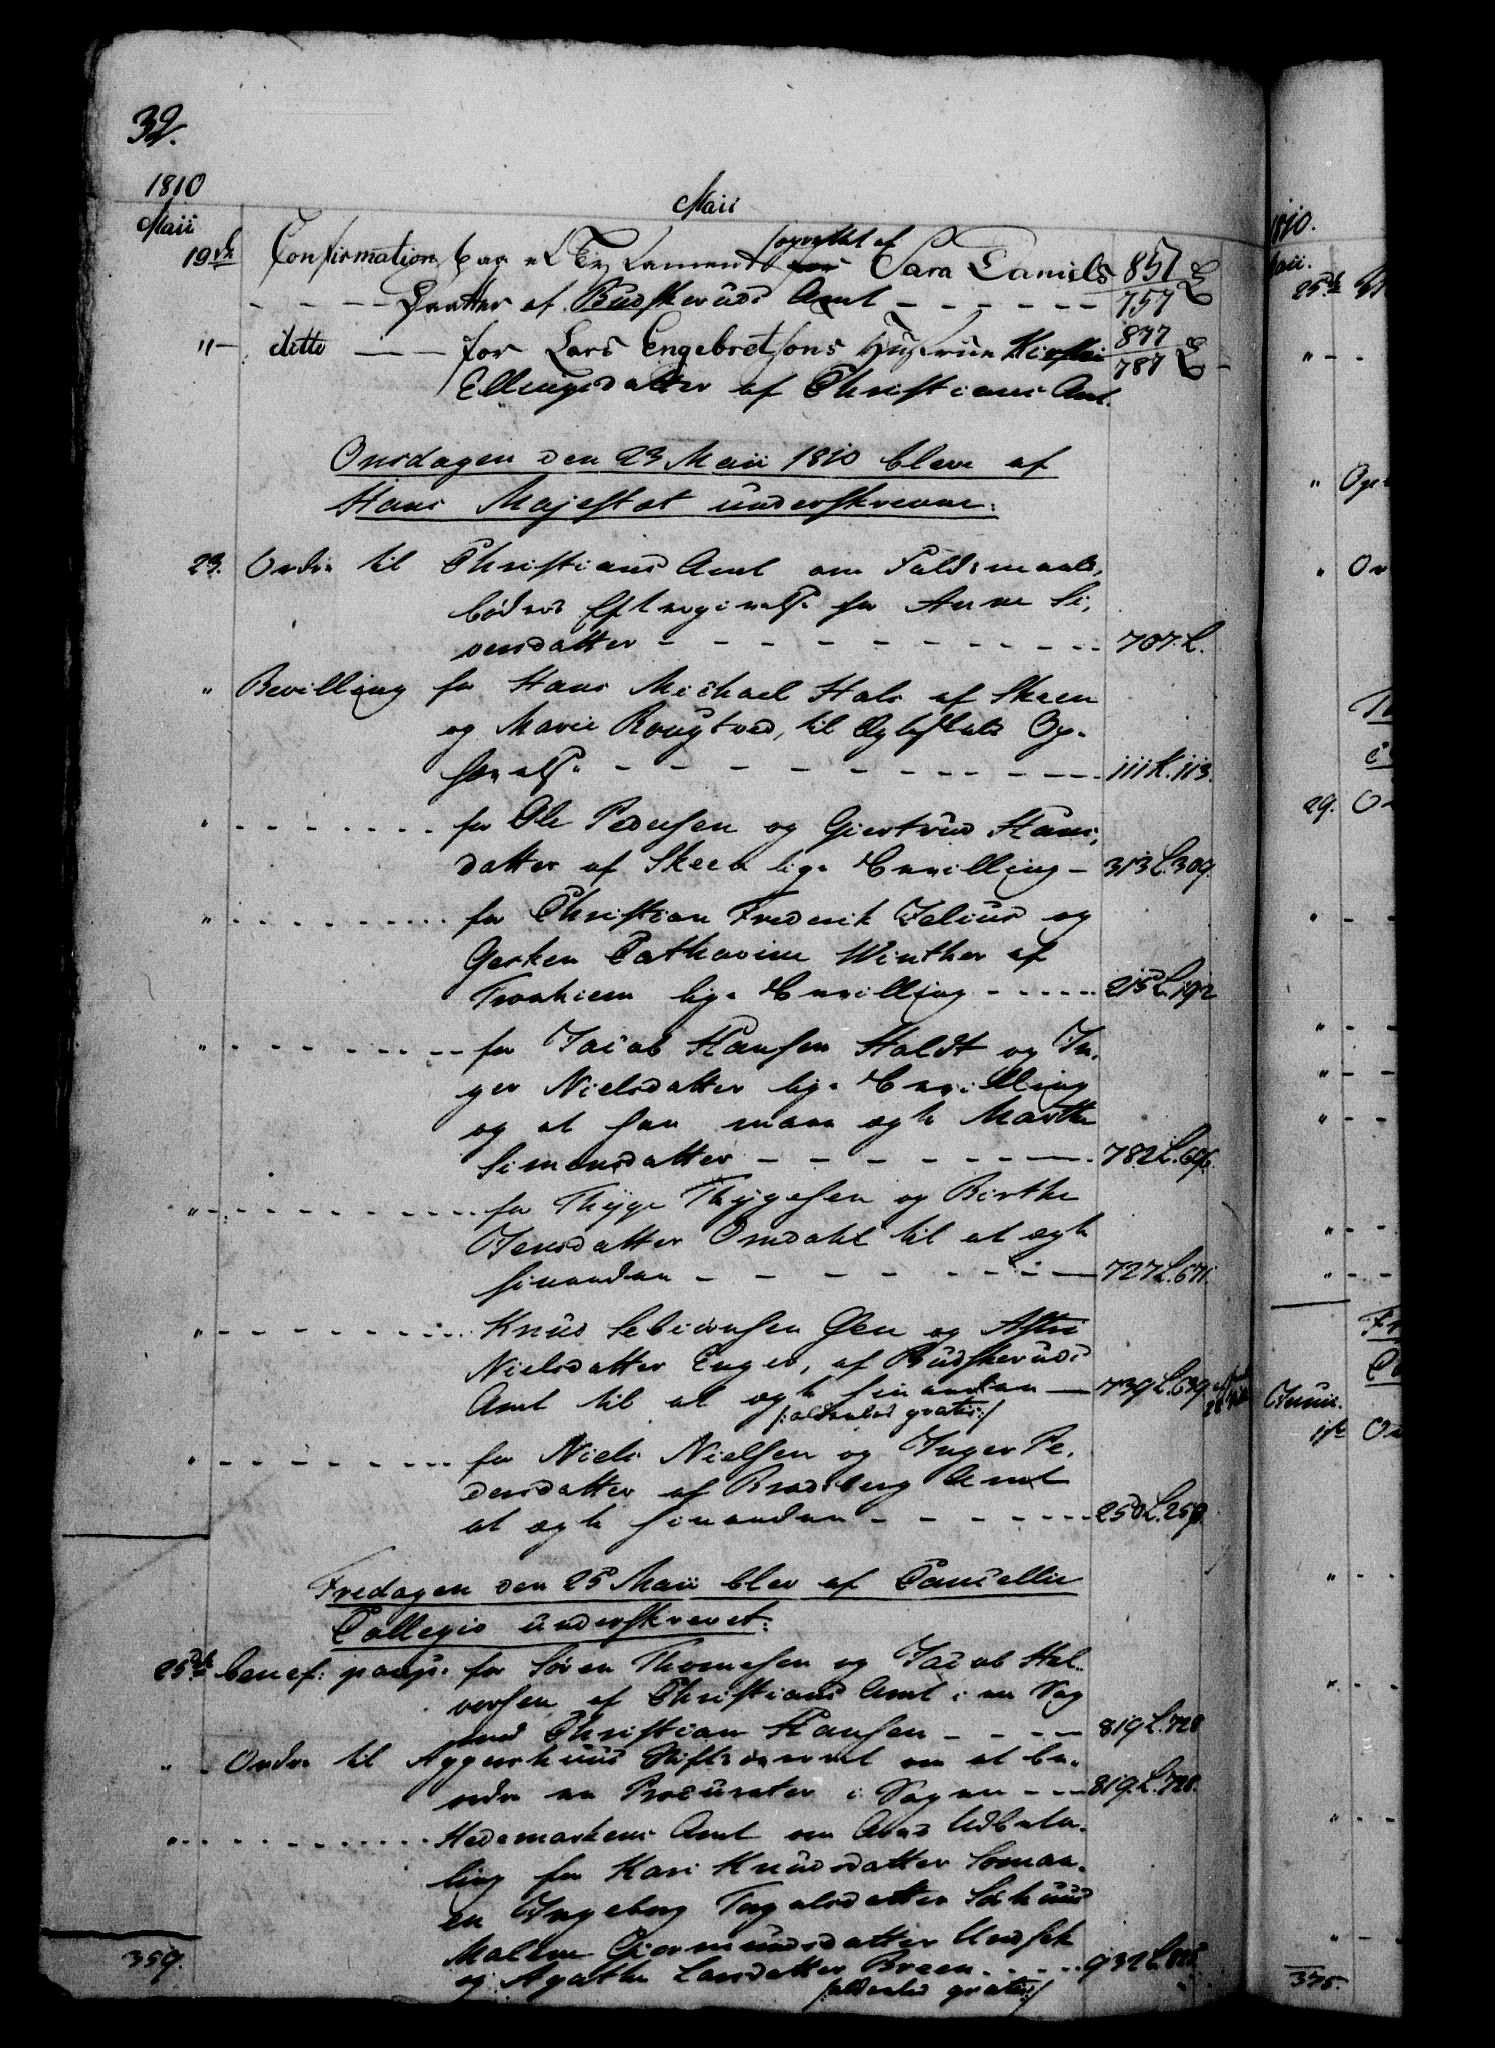 32.
1810
Maii
Maii
19de Confirmation paa et Testament oprettet af Sara Daniels 857 L
Daatter af Budskeruds Amt 757
"— ditto — for Lars Engebretsons Hustrue 877 L
Ellingsdatter af Christians Amt. 787
Onsdagen den 23 Maii 1810 bleve af
Hans Majestæt underskrevne:
23. Ordre til Christians Amt om Faldsmaals,
bøders Eftergivelse for Anne Si,
vensdatter 707 L.
" Bevilling for Hans Michael Hals af Skeen
og Marie Rougtved, til Ægteskabs Op-
hævelse 111 L. 113.
" for Ole Pedersen og Giertrud Hans,
datter af Skeen lige Bevilling 313 L. 309.
" for Christian Frederik Jelius og
Gerken Catharine Winther af
Tronhiem lige Bevilling 215 L. 192
" for Jacob Hansen Holdt og In-
ger Nielsdatter lige Bevilling
og at han maae ægte Marthe
Simensdatter 782 L. 696.
" for Thyge Thygesen og Birthe
Jensdatter Omdahl til at ægte
hinanden 727 L. 671.
" Knud Sebiørnsen Glen og Astri
Nielsdatter Enger, af Budskeruds
Amt til at ægte hinanden 739 L. 639
/: aldeeles gratis :/
" for Niels Nielsen og Inger Pe,
dersdatter af Bradsberg Amt
at ægte hinanden 250 L. 259
Fredagen den 25 Maii blev af Cancellie
Collegio underskrevet:
25de benef: paup: for Søren Thomesen og Jacob Hal-
versen af Christians Amt i en Sag
mod Christian Hansen 819 L. 728
" Ordre til Aggershuus Stiftsamt om at be-
ordre en Procurator i Sagen 819 L. 728.
" Hedemarkens Amt om Arvs Udbeta-
ling for Kari Knudsdatter Soman-
en Ingeborg
Malene Giermundsdatter
og Agathe Larsdatter Breen 932 L. 825
/: aldeeles gratis :/
359.
1810.
Maii.
25de
" — -
" Op
" Or
29. O
Junii.
1ste Or
375.